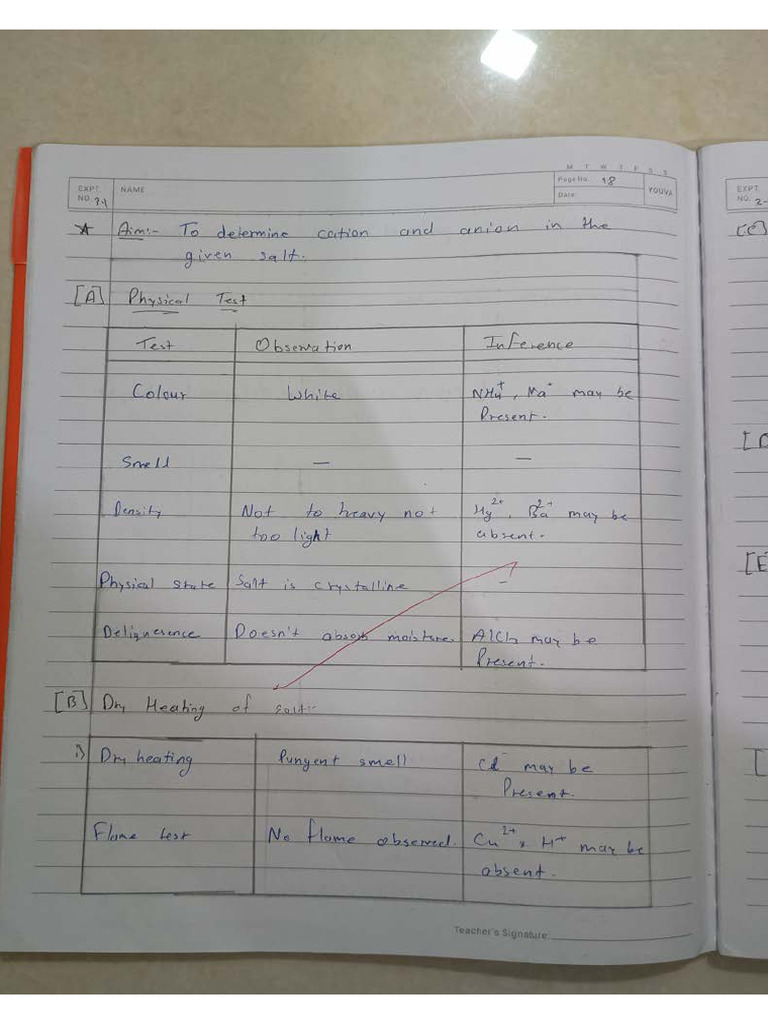 M T W T F S S
EXPT. NO. NAME Page No. 18 YOUVA
Date:
☆ Aim:- To determine cation and anion in the
given salt.
[A] Physical Test
Test Observation Inference
Colour White NH4+, may be
Present.
Smell — —
Density Not to heavy not Hg2+, Ba2+ may be
too light absent.
Physical state Salt is crystalline -
Deliquesence Doesn't absorb moisture. may be
Present.
[B] Dry Heating of salt:-
1) Dry heating Pungent smell may be
Present.
Flame test No flame observed. Cu2+, H+ may be
absent.
Teacher's Signature:
EXPT. NO. 2-
[C]
[D
[E
[